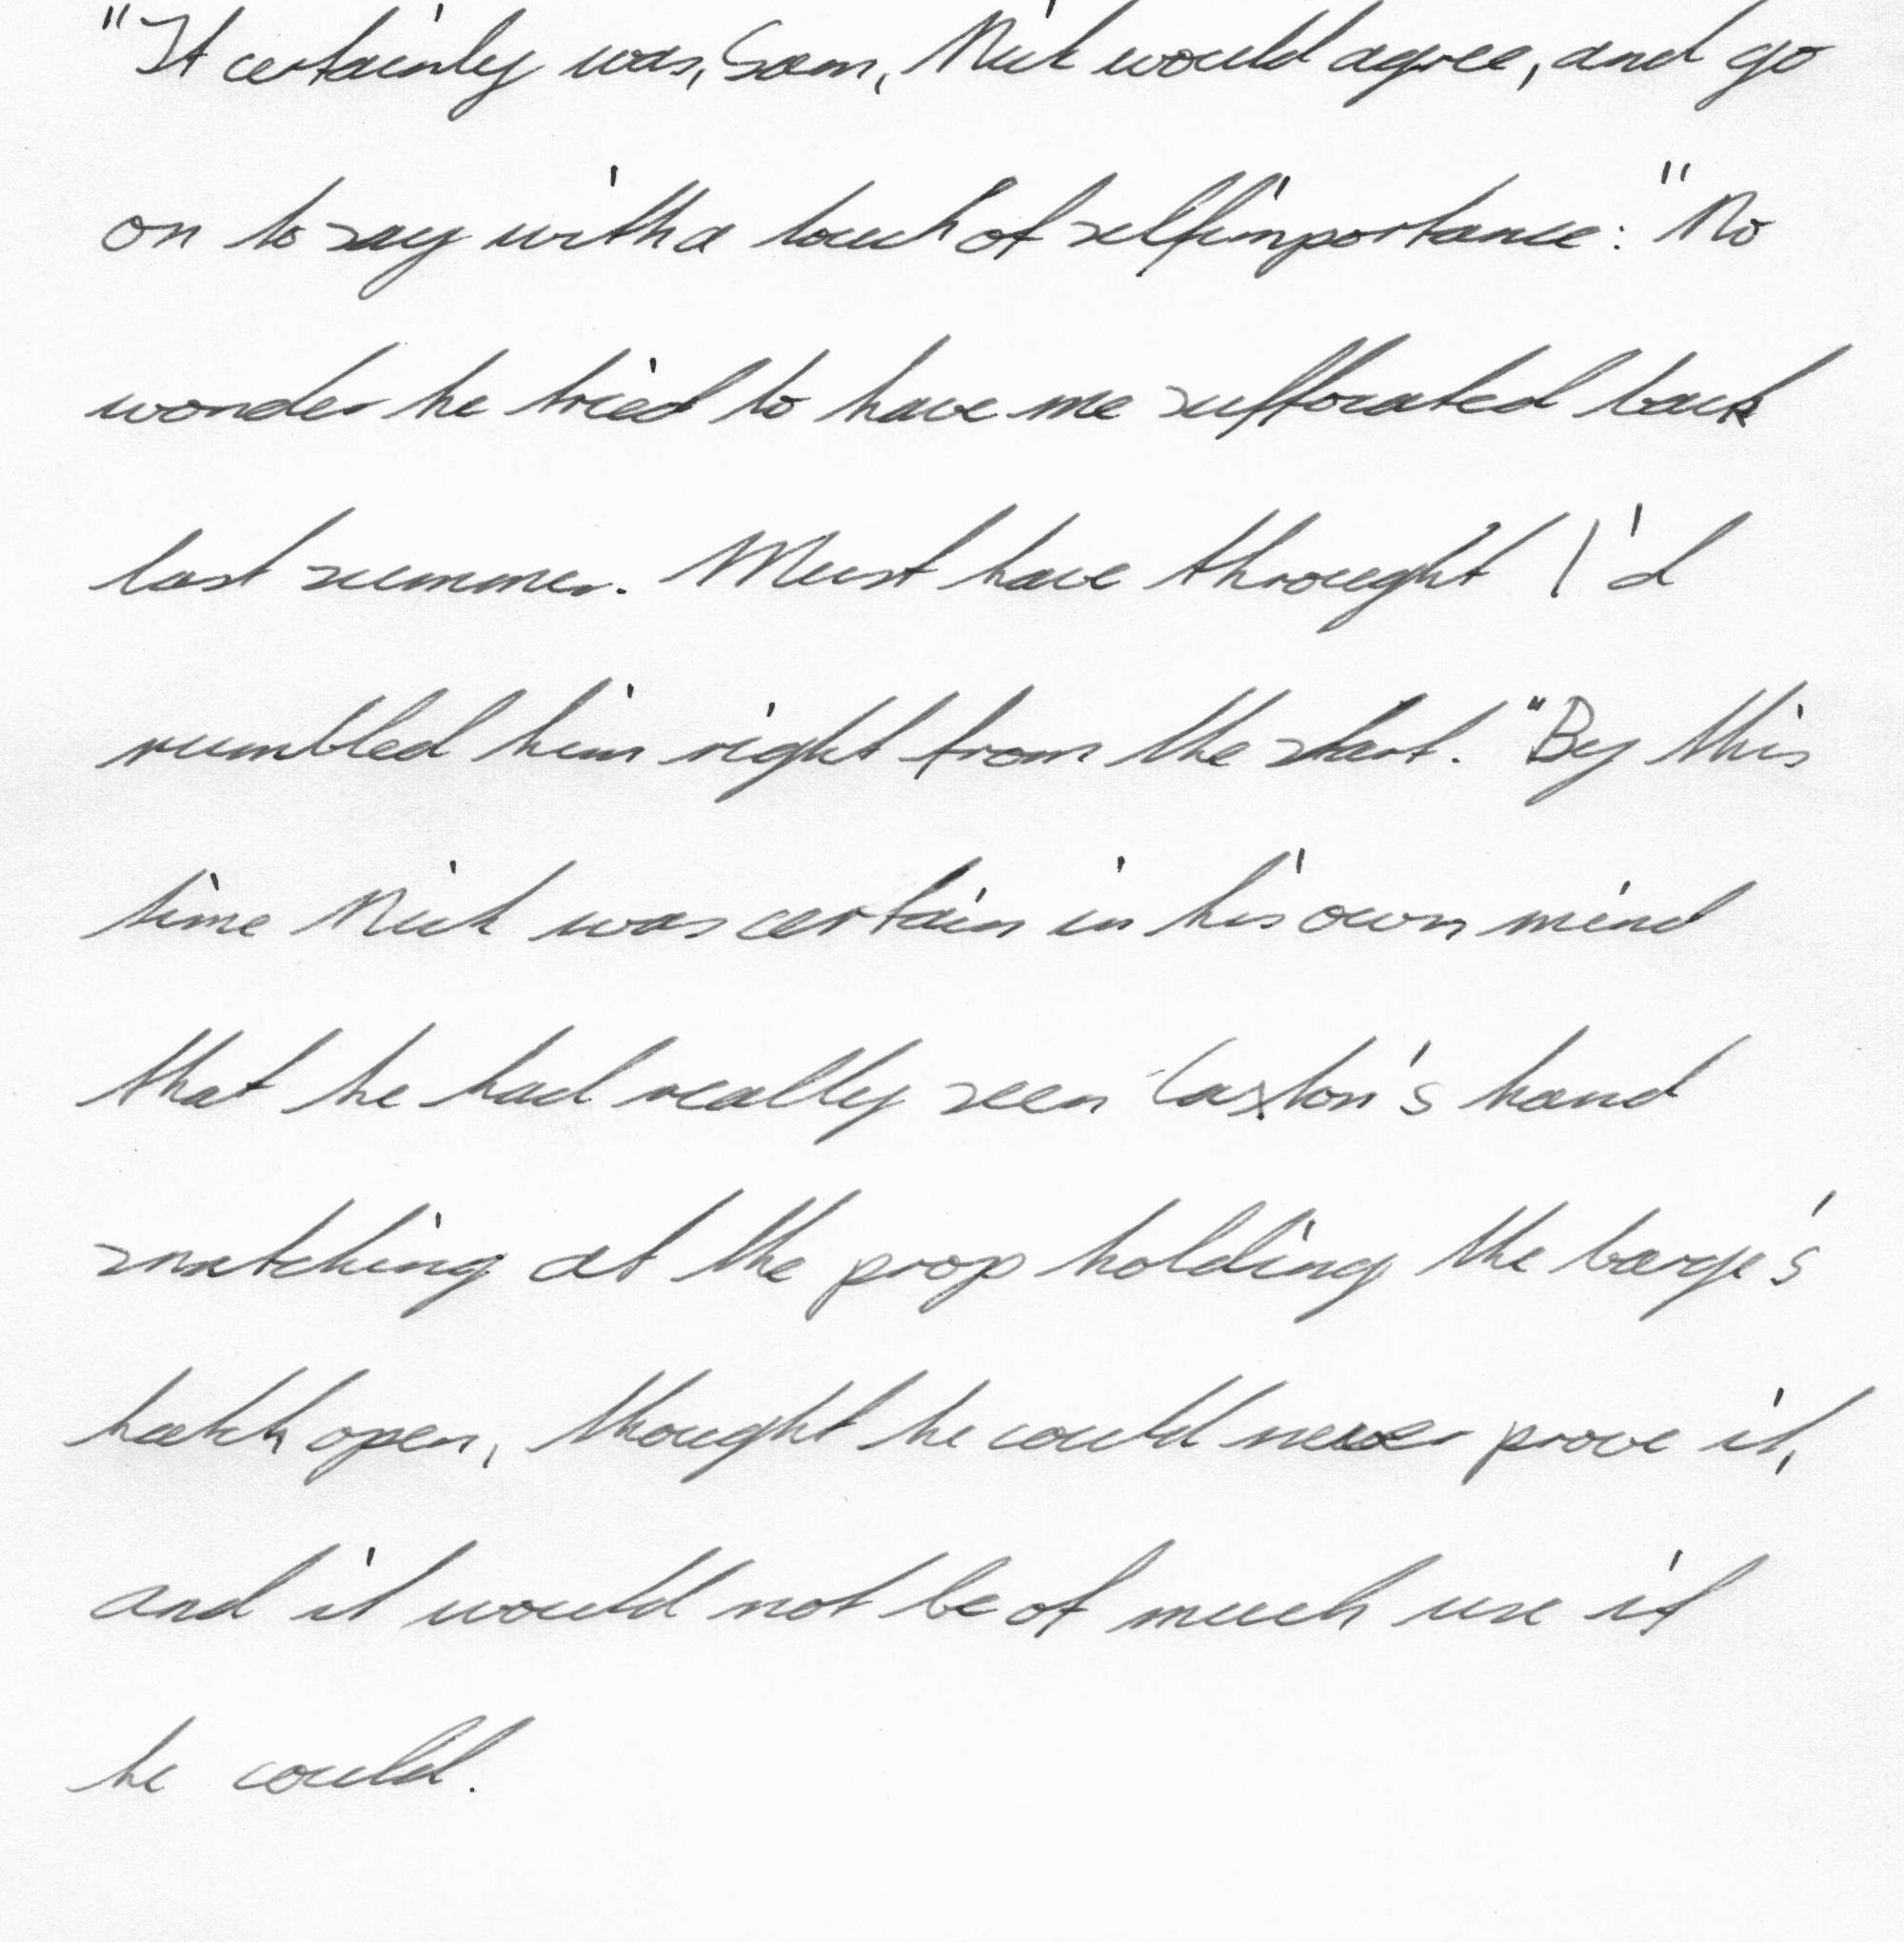 "It certainly was, Sam, Nick would agree, and go
on to say with a touch of selfimportance: "No
wonder he tried to have me suffocated back
last summer. Must have throught I'd
rumbled him right from the start. "By this
time Nick was certain in his own mind
that he had really seen Caxton's hand
snatching at the prop holding the barge's
hatch open, thought he could never prove it,
and it would not be of much use if
he could.